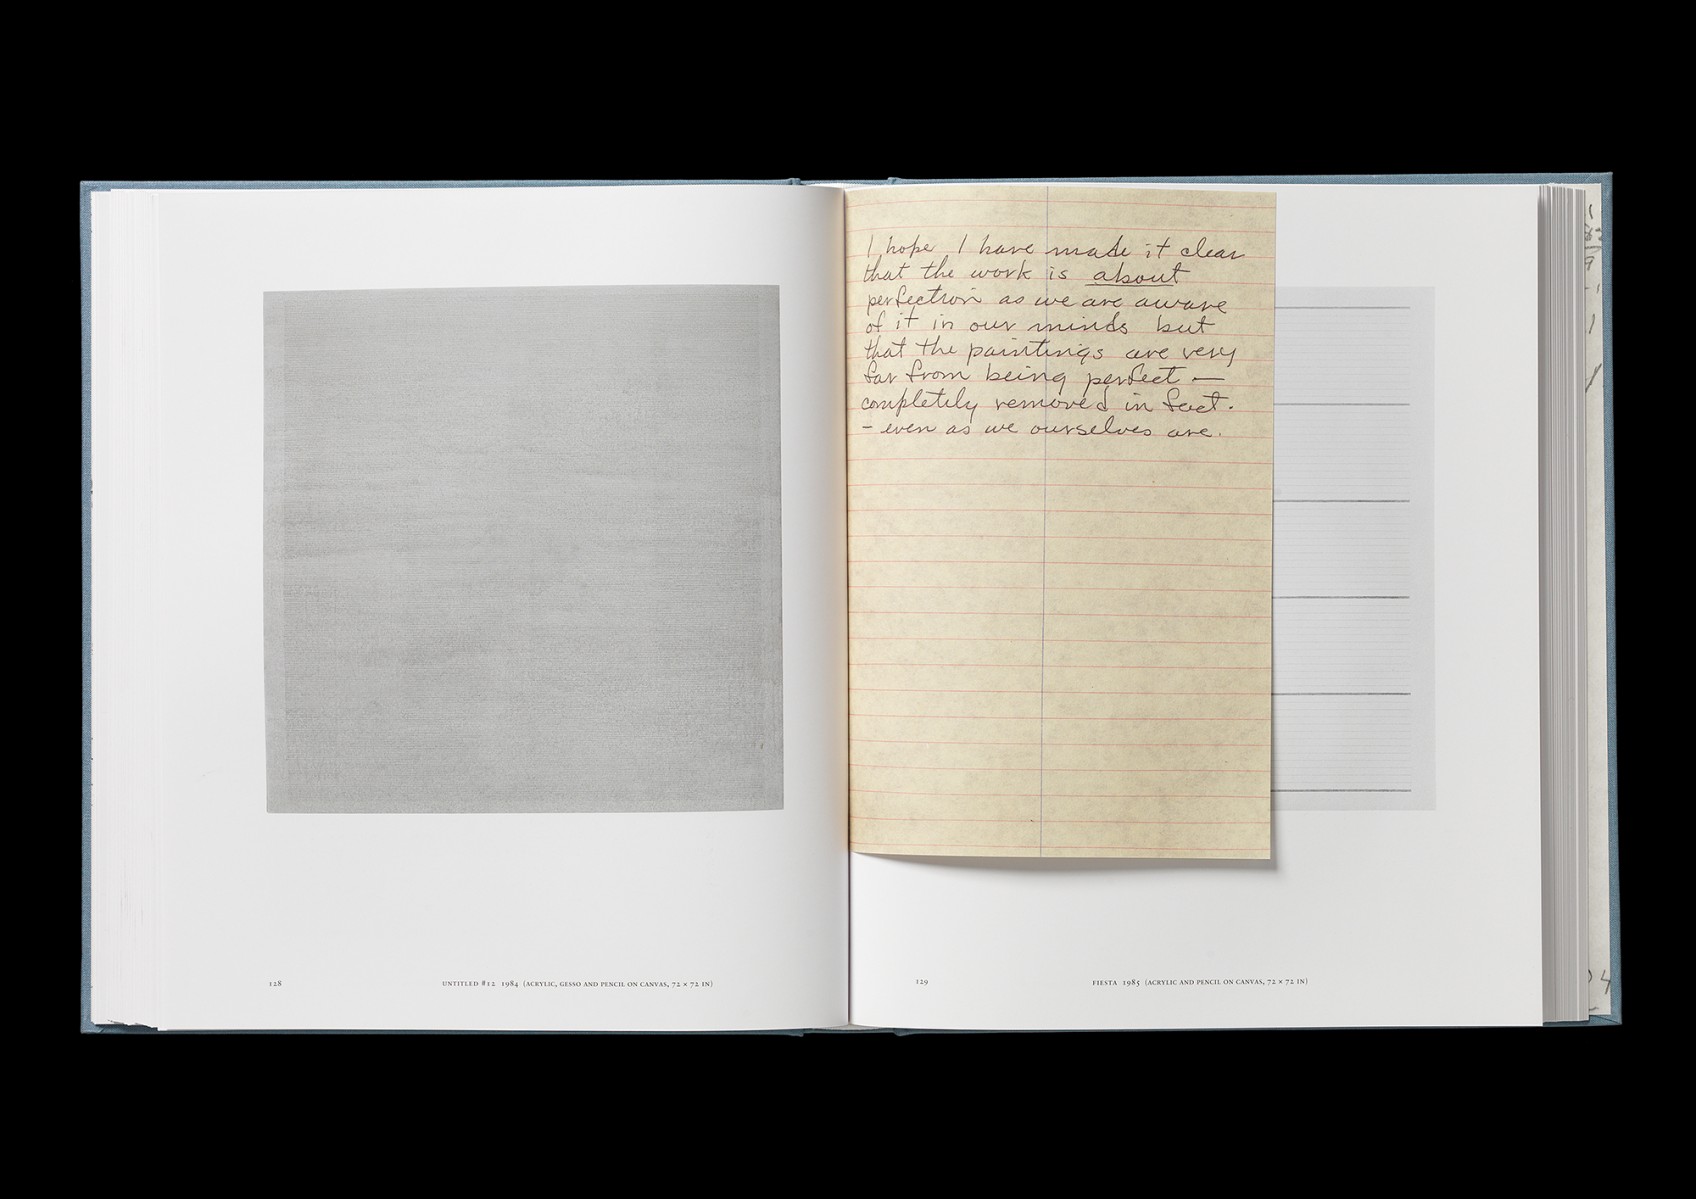 I hope I have made it clear
that the work is about
perfection as we are aware
of it in our minds but
that the paintings are very
far from being perfect —
completely removed in fact.
– even as we ourselves are.
128
UNTITLED #12 1984 (ACRYLIC, GESSO AND PENCIL ON CANVAS, 72 × 72 IN)
129
FIESTA 1985 (ACRYLIC AND PENCIL ON CANVAS, 72 × 72 IN)